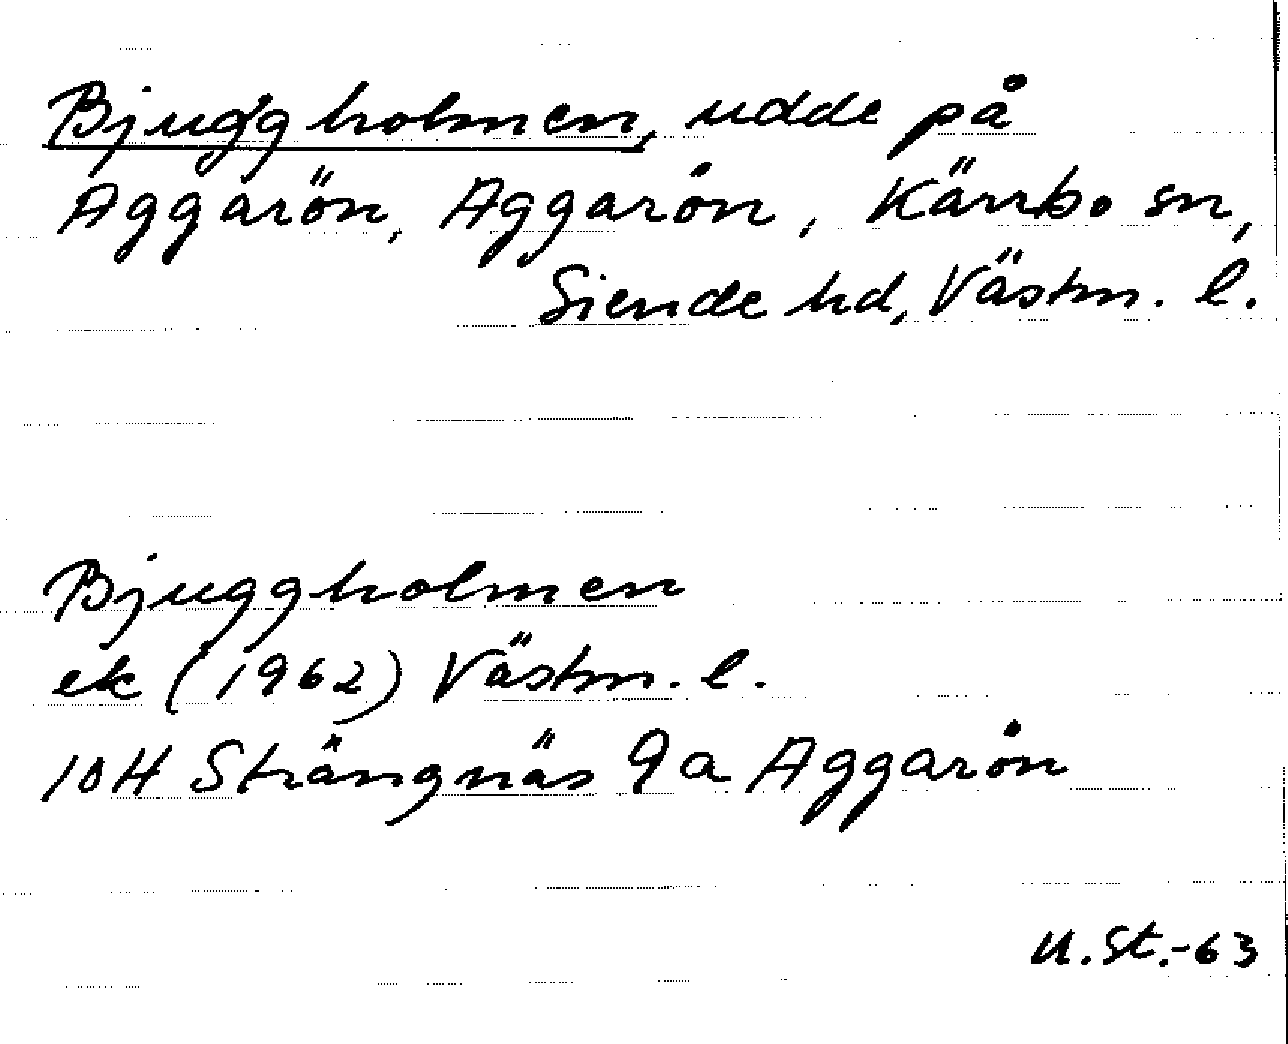 Bjuggholmen, udde på
Aggarön, Aggarön, Kärrbo sn,
Siende hd, Västm. l.
Bjuggholmen
ek (1962) Västm. l.
10H Strängnäs 9a Aggarön
U.St.-63